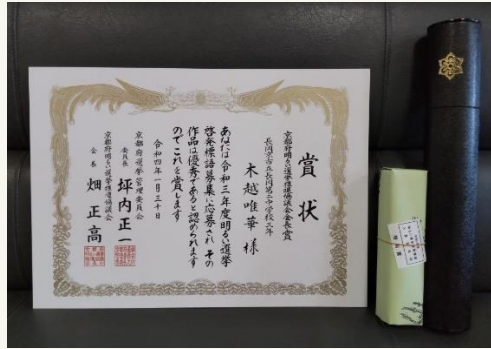 賞状
京都府明るい選挙推進協議会会長賞
長岡京市立長岡第三中学校三年
木越唯華 様
あなたは令和三年度明るい選挙
啓発標語募集に応募され その
作品は優秀であると認められます
のでこれを賞します
令和四年一月三十日
京都府選挙管理委員会
委員長 坪内正一
京都府明るい選挙推進協議会
会長 畑 正高